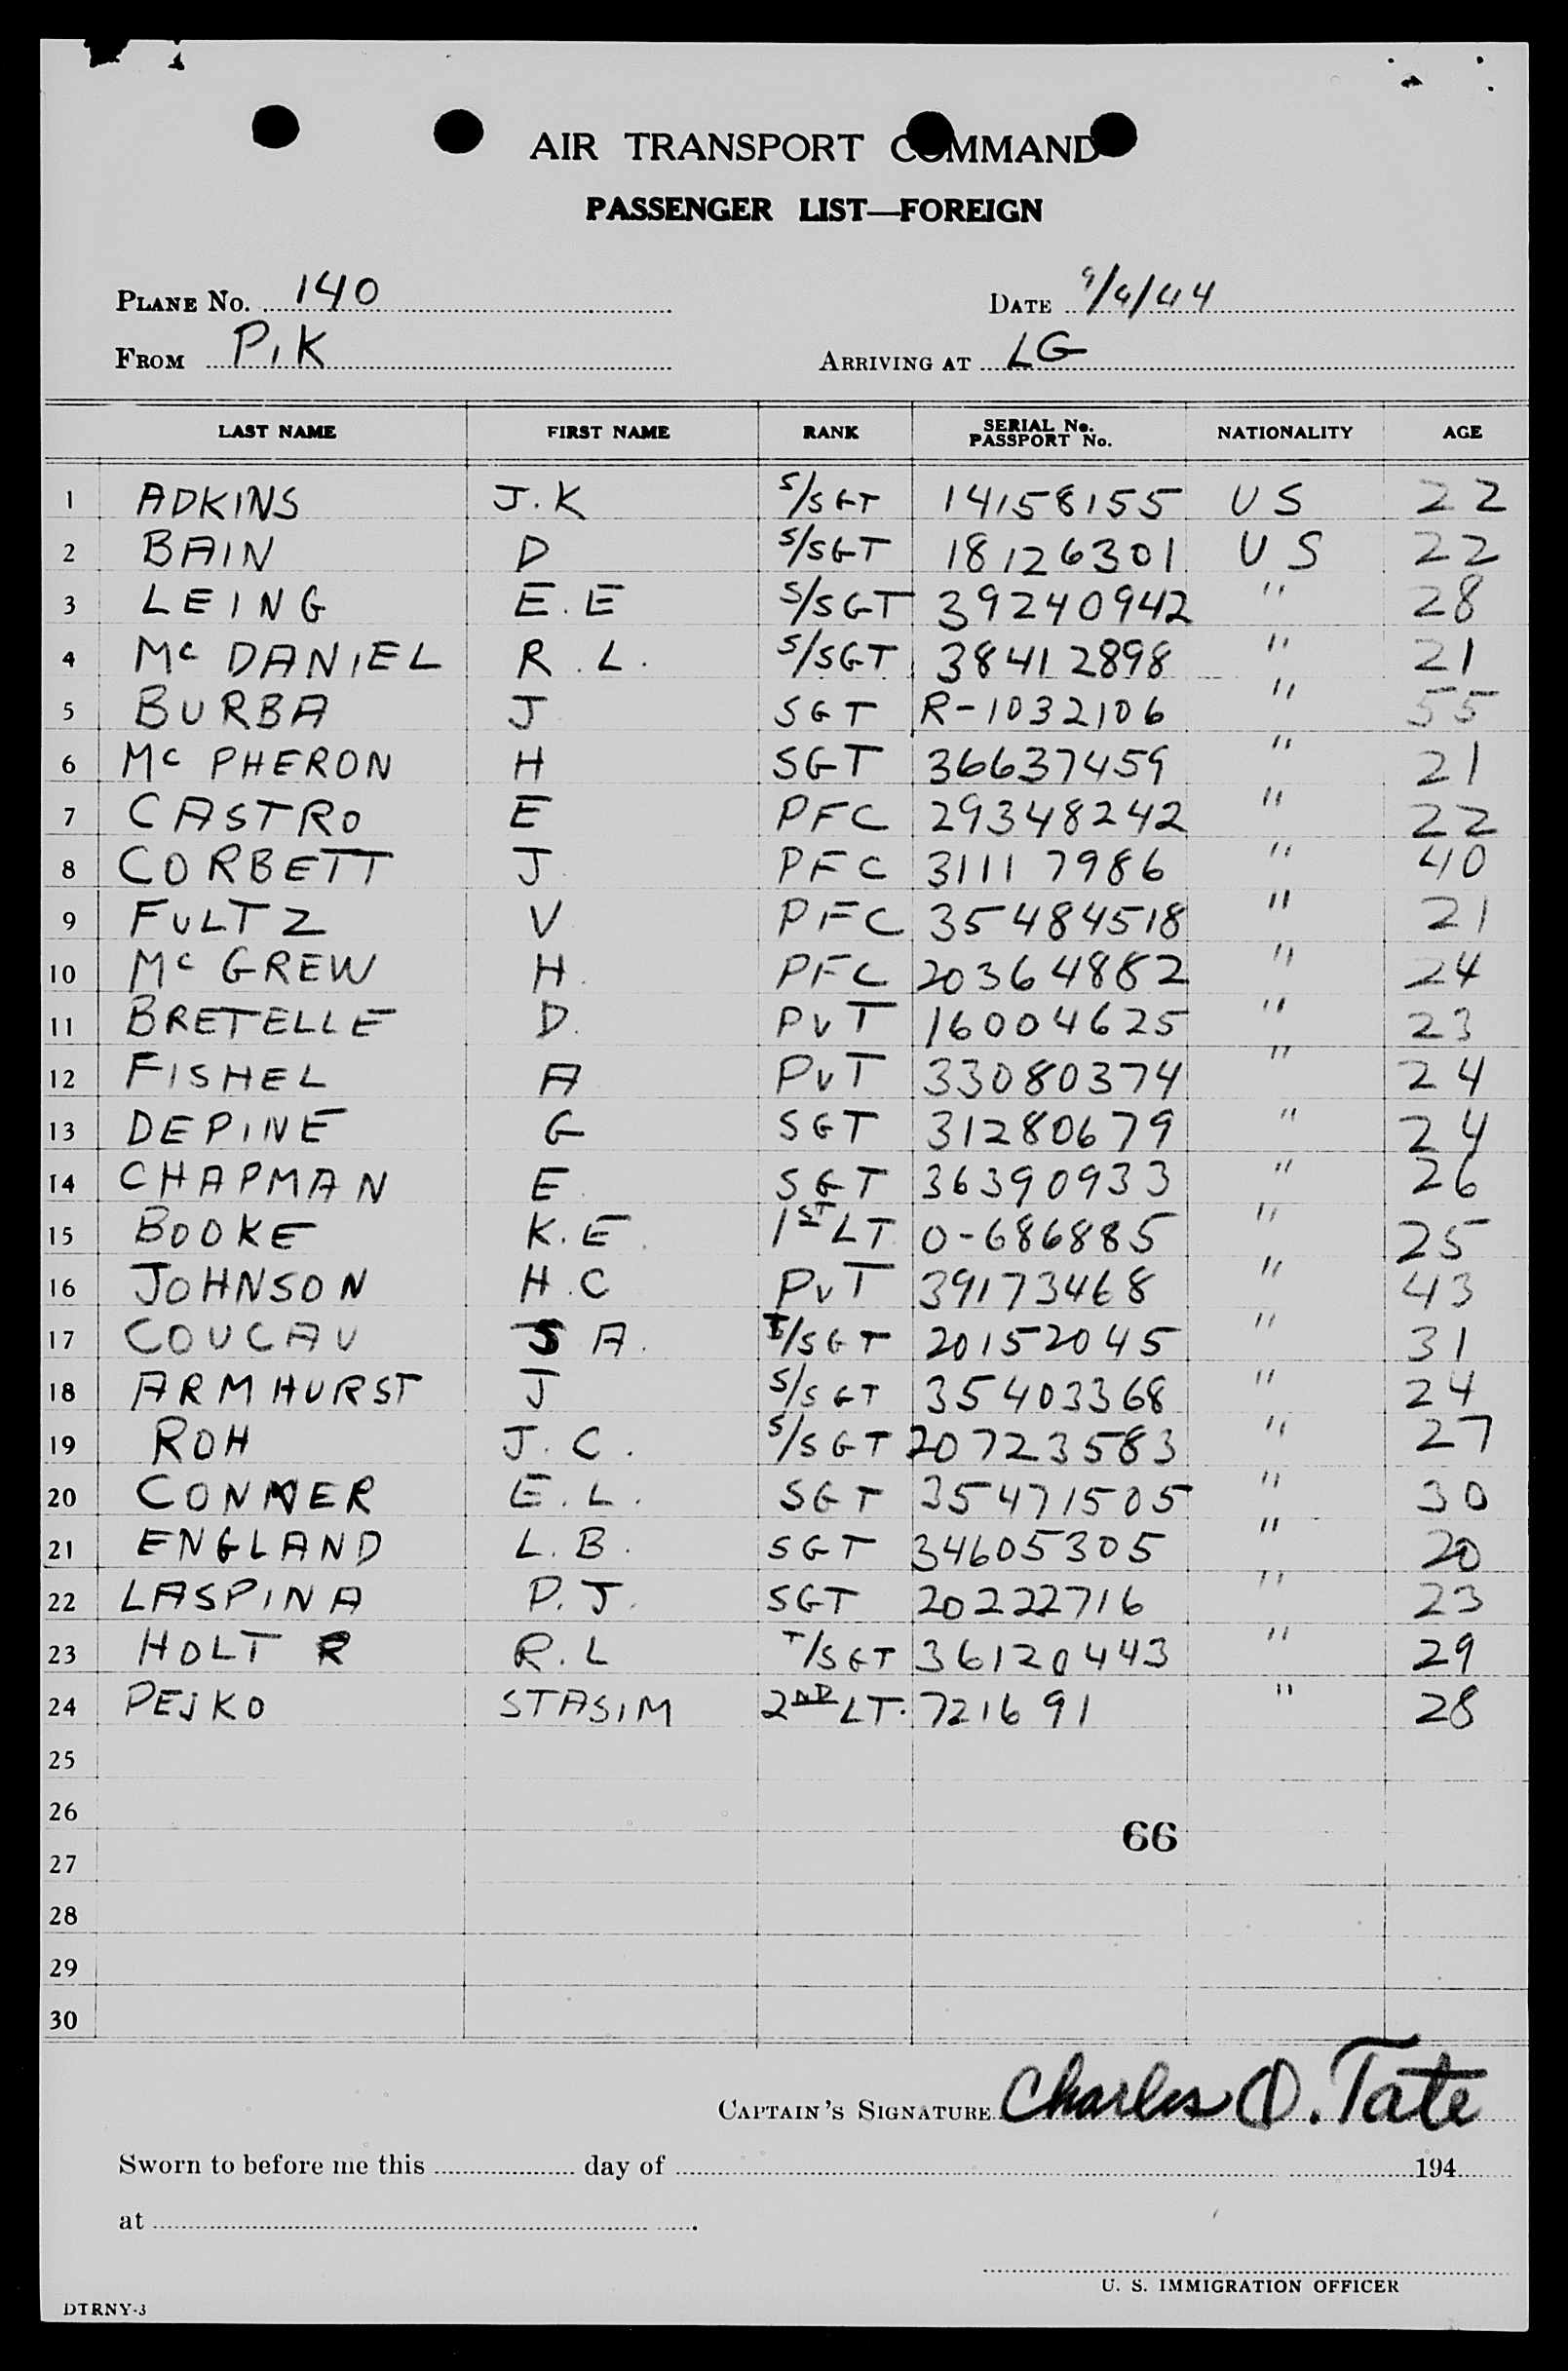 AIR TRANSPORT COMMAND
PASSENGER LIST—FOREIGN
PLANE No. 140 DATE 9/9/44
FROM P.K ARRIVING AT LG
LAST NAME FIRST NAME RANK SERIAL No. PASSPORT No. NATIONALITY AGE
1 ADKINS J.K S/SGT 14158155 US 22
2 BAIN D S/SGT 18126301 US 22
3 LEING E.E S/SGT 39240942 " 28
4 Mc DANIEL R.L. S/SGT 38412898 " 21
5 BURBA J SGT R-1032106 " 55
6 Mc PHERON H SGT 36637459 " 21
7 CASTRO E PFC 29348242 " 22
8 CORBETT J PFC 31117986 " 40
9 FULTZ V PFC 35484518 " 21
10 Mc GREW H. PFC 20364882 " 24
11 BRETELLE D. PVT 16004625 " 23
12 FISHEL A PVT 33080374 " 24
13 DEPINE G SGT 31280679 " 24
14 CHAPMAN E SGT 36390933 " 26
15 BOOKE K.E. 1ST LT O-686885 " 25
16 JOHNSON H.C PVT 39173468 " 43
17 COUCAU J A. T/SGT 20152045 " 31
18 ARMHURST J S/SGT 35403368 " 24
19 ROH J.C. S/SGT 20723583 " 27
20 CONNER E.L. SGT 35471505 " 30
21 ENGLAND L.B. SGT 34605305 " 20
22 LASPINA P.J. SGT 20222716 " 23
23 HOLT R R.L T/SGT 36120443 " 29
24 PEJKO STASIM 2ND LT. 721691 " 28
25
26
66
27
28
29
30
CAPTAIN'S SIGNATURE Charles D. Tate
Sworn to before me this day of 194
at .
U. S. IMMIGRATION OFFICER
DTRNY-3